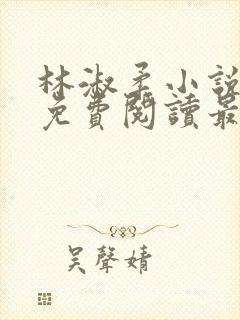 林淑柔小說
免費閱讀最
吴聲婧